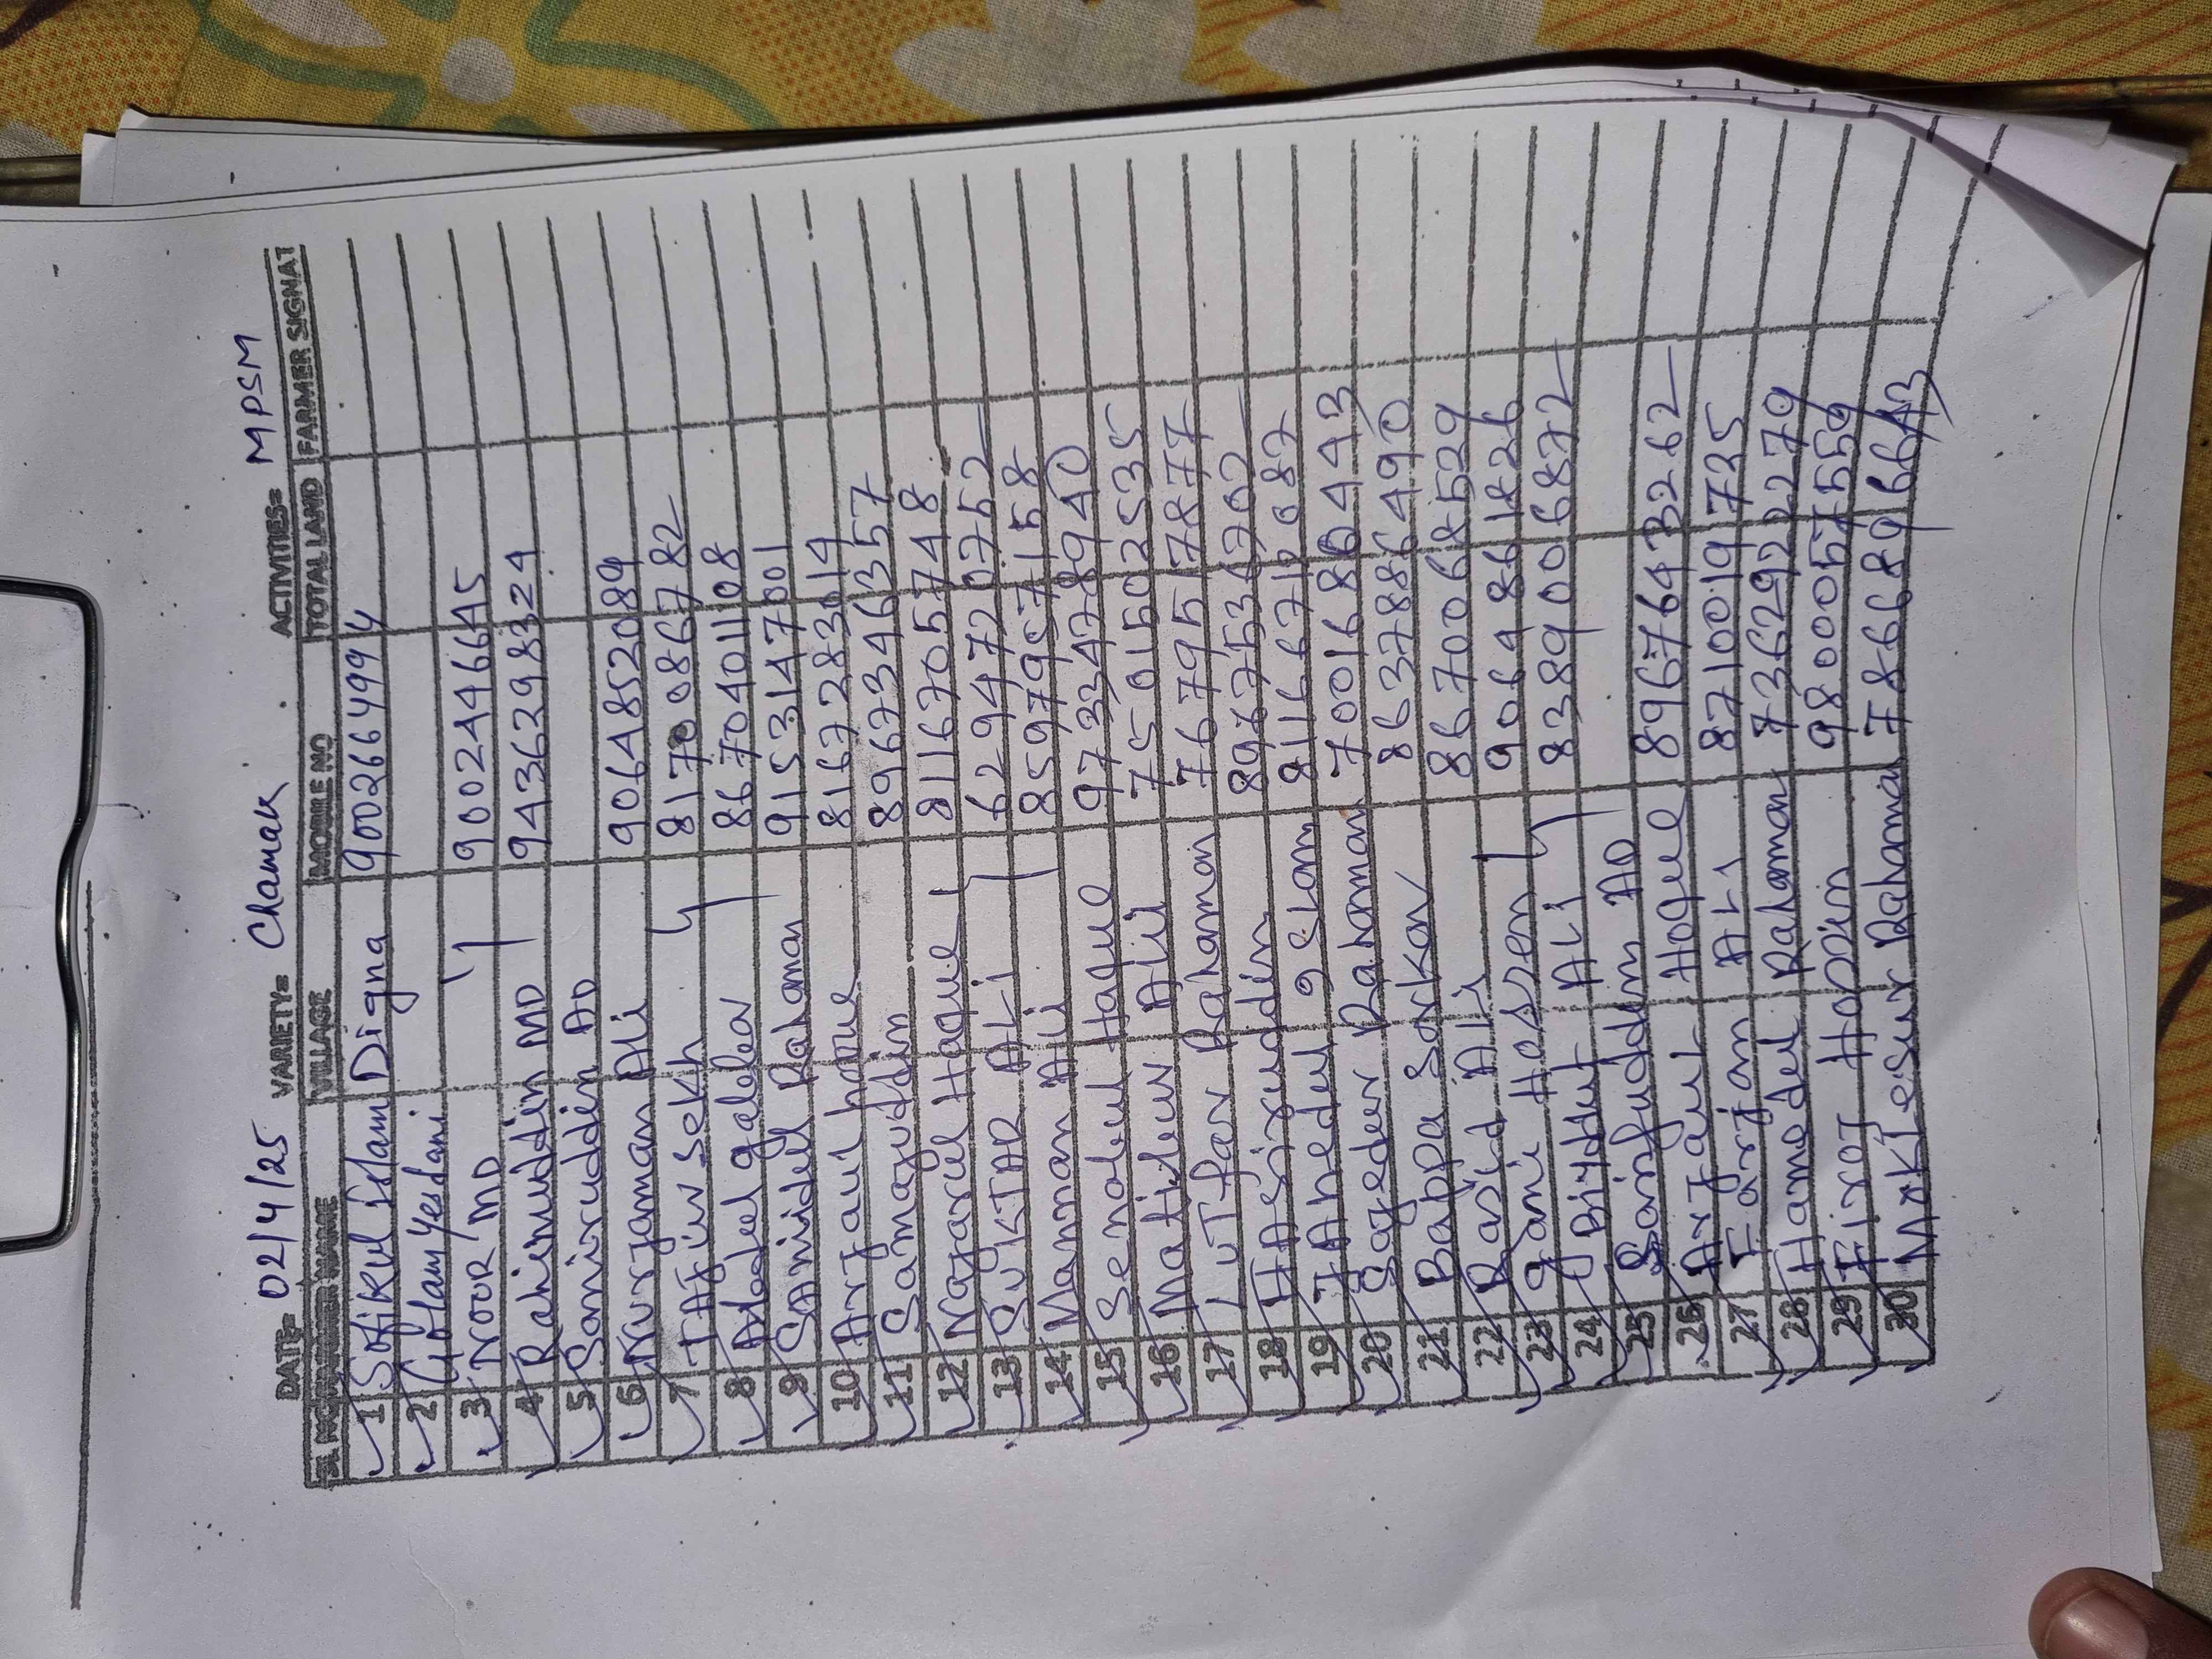 DATE= 02/4/25 VARIETY= Chamak ACTIVITIES= MPSM
SL NO FARMER NAME VILLAGE MOBILE NO TOTAL LAND FARMER SIGNAT
1 Sofikul islam Digna 9002664994
2 Golam Yesdani
3 NOOR MD 9002446645
4 Rahimuddin MD 9436298324
5 Samiruddin AD
6 Nurjaman Ali 9064852089
7 TAjiw Sekh 8170086782
8 Abdul galelev 8670401108
9 SAmidul Rahaman 9153147001
10 Arjaul haque 8167283019
11 Samaguddin 8967346357
12 Najarul Haque 8116705748
13 SuKTAR ALI 6294720752
14 Mannan Ali 8597957158
15 Senabul Haque 9733478940
16 Matibur Ali 7501502535
17 LuTfar Rahaman 7679517877
18 HAsiruddin 8967536702
19 JAhedul islam 8116671087
20 Sajedur Rahaman 7001680443
21 Bappa Sarkar 8637886490
22 Rasid Ali 8670068529
23 gani Hossen 9064861826
24 Biyddut ALI 8389006872
25 Sarifuddem AD
26 Arjaul Hoque 8967643262
27 Farjan ALI 8710019725
28 Hamedul Rahaman 7362922279
29 Firoj Hossin 9800057559
30 MokLesur Rahaman